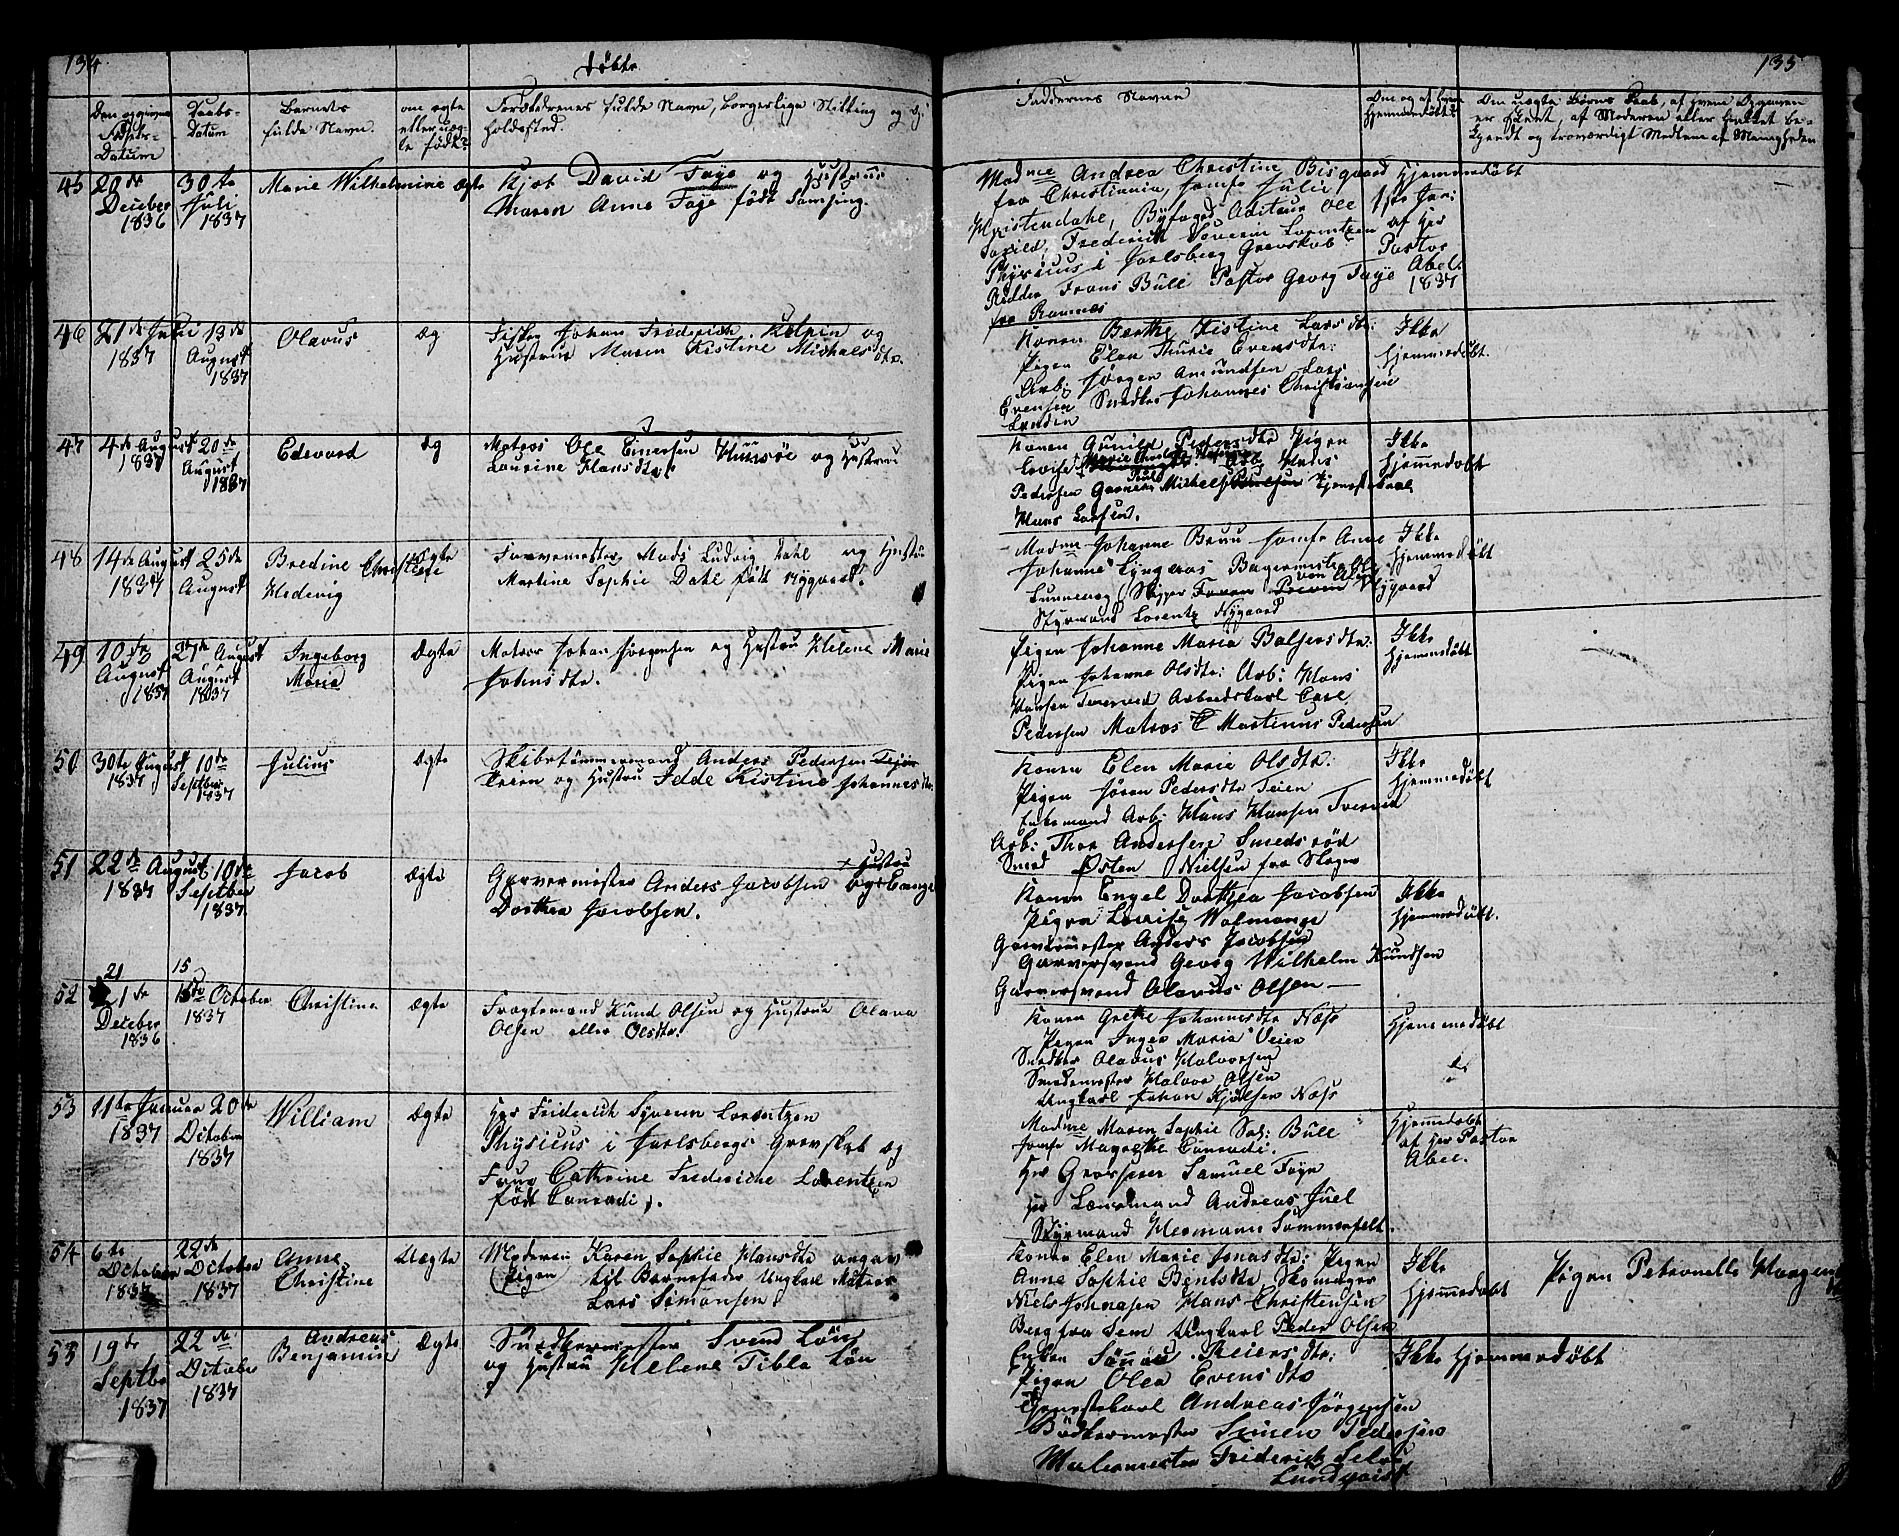 134
Døbte
Den opgivne Fødsels-Datum
Daabs-Datum
Barnets fulde Navn.
om ægte eller uægte født?
Forældrenes fulde Navn, borgerlige Stilling og Opholdssted.
45
20de December 1836
30te Juli 1837
Marie Wilhelmine
ægte
David Faye og Hustrue
Maren Anne Faye født Samsing.
46
21de 1837
13de August 1837
Olavus
æg
Fisker Johan Frederich og
Hustrue Maren Kistine Michelsdtr.
47
4de August 1837
20de August 1837
Edevard
æg
Matros Ole Einersen Huusøe og Hustrue
Laurine Hansdtr.
48
14de August 1837
25de August
Bredine Christine Hedevig
Ægte
Farvemester Mads Ludvig Dahl og Hustrue
Martine Sophie Dahl født Nygaard.
49
10de August 1837
27de August
August 1837
Ingeborg Maria
Ægte
Matros Johan Jørgensen og Hustru Helene Marie
Johnsdtr.
50
30te August 1837
10de Septber 1837
Julius
Ægte
Skibstømmermand Anders Pedersen
og Hustru Kistine Johannesdtr.
51
22de August 1837
10de Septber 1837
Jacob
Ægte
Hustru
Garvermester Anders Jacobsen og
Dorthea Jacobsen.
52
21 15
21de December 1836
15de October 1837
Christine
Ægte
Fragtemand Knud Olsen og Hustrue Olava
Olsen eller Olsdtr.
53
11te Januar 1837
20de October 1837
William
Ægte
Hr Friderich Severin Lorentzen
Physicus i Jarlsbergs Grevskab og
Frue Cathrine Frederiche Lorentzen
født Conradi.
54
6te October 1837
22de October 1837
Anne Christine
Uægte
Moderen Karen Sophie Hansdtr angav
(Pigen) til Barnefader Ungkarl Matros
Lars Simonsen
55
19de Septbr 1837
22de October 1837
Andreas
Benjamin
Ægte
Snedkermester Svend Løn
og Hustru Helene Tibla Løn
135
Faddernes Navne
Om og af hvem Hjemmedøbt
Om uægte Børns Daab, af hvem Opgaven
er skeet, af Moderen eller hvilket be-
kjendt og troværdigt Medlem af Menigheden
Madme Andrea Christine Bisgaard
fra Christiania, Jomfr Julie
Byfoged Auditeur Ole
Frederich Severin Lorentzen
Physicus i Jarlsberg Grevskab
Frans Bull Pastor Georg Faye
fra Ramnes
Hjemmedøbt
1ste Jan:
af Her
Pastor
Abel.
1837
Konen Berthe Kistine Larsdtr:
Pigen Elen Thurie Evensdtr:
Arb: Jørgen Amundsen Lars
Evensen Snedker Johannes Christiansen
Ikke
Hjemmedøbt.
Konen Gunild Pedersdtr Pigen
Arb Hans
Pedersen Garver Michel Tjenestekarl
Hans Larsen.
Ikke
Hjemmedøbt
Madme Johanne Bruu Jomfr Anne
Johanne Lyngaas Bagermester Ole
Skipper Nygaard
Styrmand Lorentz Nygaard
Ikke
Hjemmedøbt
Pigen Johanne Maria Balsersdtr:
Pigen Johanne Olsdtr: Arb: Hans
Hansen Arbeidskarl Carl
Pedersen Matros Martinus Pedersen
Ikke
Hjemmedøbt
Konen Elen Marie Olsdtr.
Pigen Pedersdtr Teien
Enkemand Arb: Hans Hansen
Arb: Thor Andersen Smedsrød
Smed Østen Nielsen fra Slagen
Ikke
Hjemmedøbt
Konen Engel Dorthea Jacobsen
Pigen Lovise
Garvermester Anders Jacobsen
Garversvend Georg Wilhelm Knudsen
Garversvend Olavus Olsen
Ikke
Hjemmedøbt.
Konen Grethe Johannesdtr Næss
Pigen Inger Maria Veien
Snedker Olavus Halvorsen
Smedemester Halvor Olsen
Ungkarl Johan Kjølsen Næss
Hjemmedøbt
Madme Maren Sophie Bull
Jomfr Magrethe Conradi.
Hr Grosserer Samuel Faye
Hr Lensmand Andreas Juel
Styrmand Hermann Sommerfelt.
Hjemmedøbt
af Her Pastor
Abel.
Konen Elen Marie Jonasdtr: Pigen
Anne Sophie Bentsdtr Skomager
Niels Johnasen Hans Christensen
Berg fra Sem Ungkarl Peder Olsen
Ikke
Hjemmedøbt
Pigen Petronelle
Enken Meiersdtr:
Pigen Olea Evensdtr
Tjenestekarl Andreas Jørgensen
Bødkermester Simen Pedersen
Malermester Friderich
Lundqvist
Ikke Hjemmedøbt